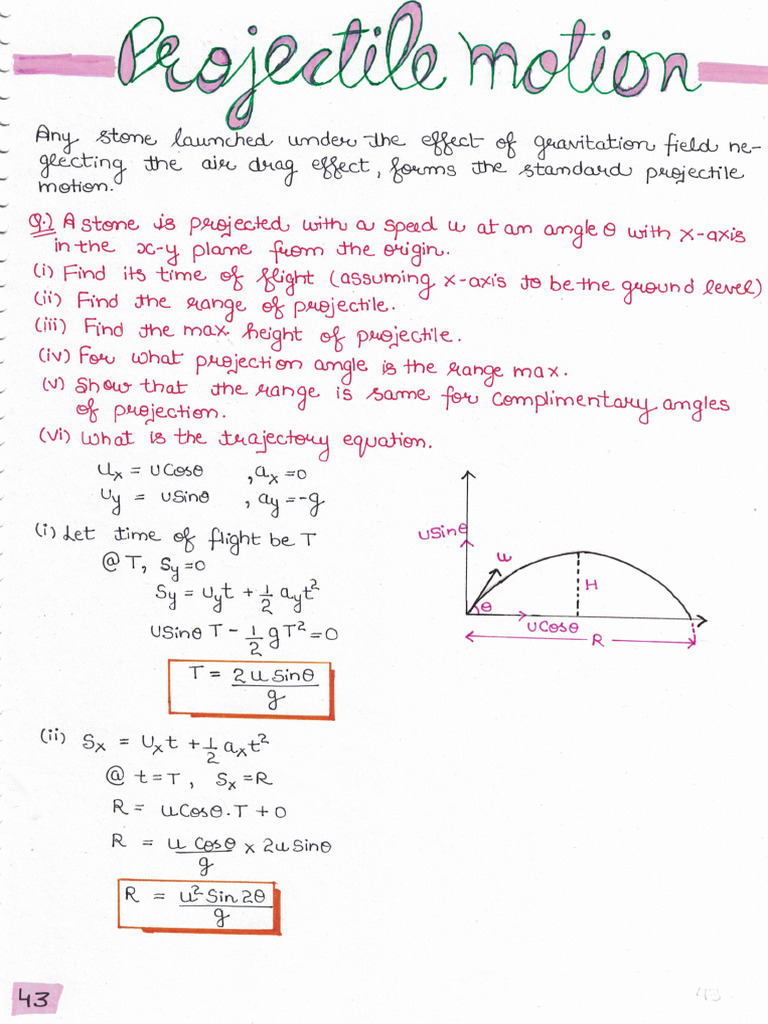 Projectile motion
Any stone launched under the effect of gravitation field ne-
glecting the air drag effect, forms the standard projectile
motion.
Q.) A stone is projected with a speed u at an angle θ with x-axis
in the x-y plane from the origin.
(i) Find its time of flight (assuming x-axis to be the ground level)
(ii) Find the range of projectile.
(iii) Find the max height of projectile.
(iv) For what projection angle is the range max.
(v) Show that the range is same for complimentary angles
of projection.
(vi) What is the trajectory equation.
u_x = uCosθ , a_x = 0
u_y = uSinθ , a_y = -g
(i) Let time of flight be T
@ T, S_y = 0
S_y = u_y t + 1/2 a_y t²
uSinθ T - 1/2 g T² = 0
T = 2u Sinθ / g
uSinθ
u
H
θ
uCosθ
R
(ii) S_x = u_x t + 1/2 a_x t²
@ t = T, S_x = R
R = uCosθ.T + 0
R = u Cosθ / g × 2u Sinθ
R = u² Sin 2θ / g
43
43